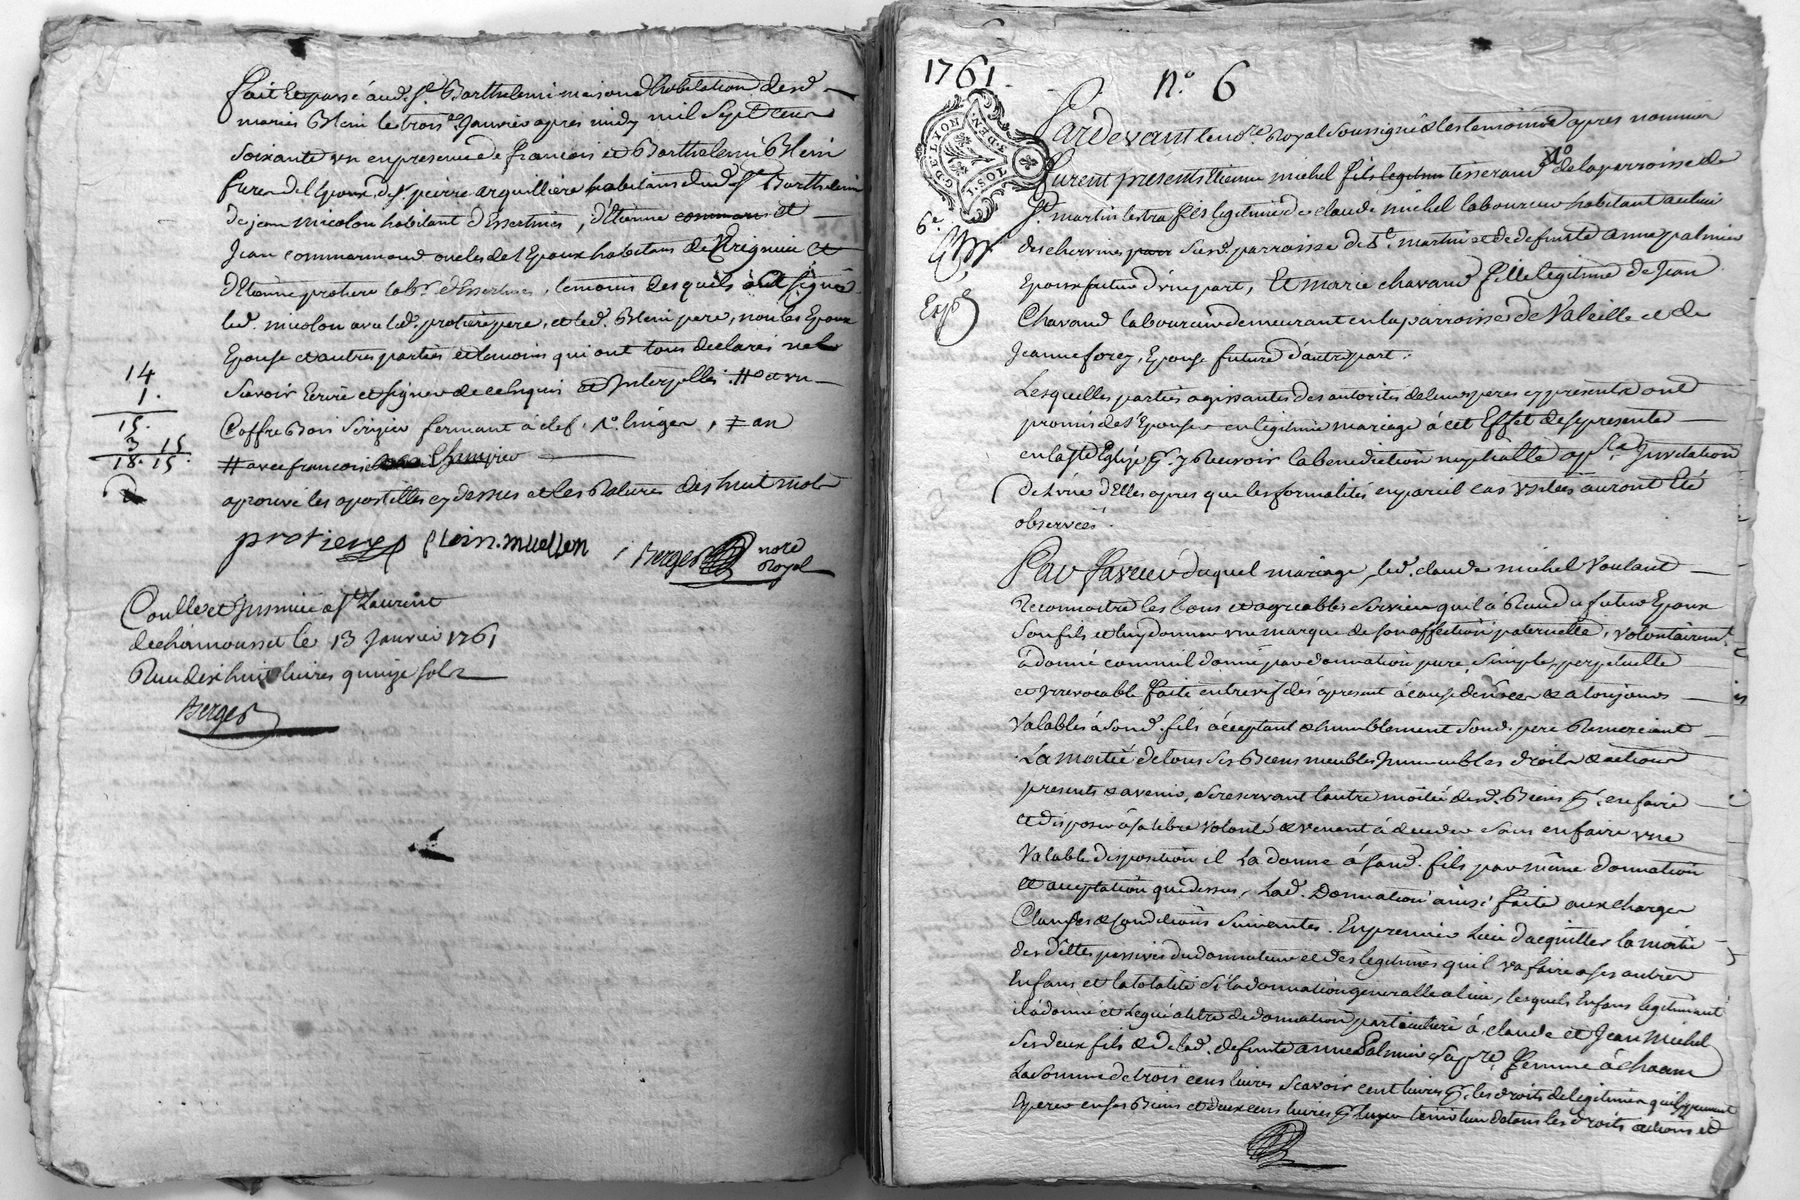 fait et passé aud. St. Barthelemi maison d'habitation desd.
mariés Blein le trois.e Janvier apres midy mil sept cens
soixante un en presence de francois et Barthelemi Blein
freres de l'epoux, de Sr. pierre arquilliere habitans dud. St. Barthelemi
de jean micolon habitant d'Essertines, d'Etienne commarm et
Jean commarmond oncles de l'Epoux habitans de Virigneu et
d'Etienne protiere labr. d'Essertines, temoins lesquels ont signé
led. micolon avec led. protiere pere, et led. Blein pere, non les Epoux
Epouse et autres parties et temoins qui ont tous declarés ne
scavoir Ecrire et signer de ce enquis et Interpellés. # et un
Coffre Bois Serizier fermant à clef, linger, ≠ an
# avec francoise
aprouvé les apostilles cy dessus et les Ratures des huit mots
14
1.
15.
3 15
18. 15.
protiere Blein. muellon Berger note Royal
Controllé et Insinué à St Laurent
de chamousset le 13 Janvier 1761
Reçu dix huit livres quinze sols
Berger
1761.
n.o 6
G. DE LYON
6e
Exp.é
Pardevant le no.re Royal soussigné & les temoins apres nommés
furent presents Etienne michel fils legitime tisserand de la parroisse de
St. martin lestra fils legitime de claude michel laboureur habitant au lieu
des cherVines pour susd. parroisse de St. martin et de defunte anne palmier
Epoux futur d'une part, Et marie chavand fille legitime de Jean
Chavand laboureur demeurant en la parroisse de Valeille et de
Jeanne forey, Epouse future d'autre part.
Lesquelles parties agissantes des autorités de leurs peres cy presents ont
promis de s'Epouser en legitime mariage à cet Effet de se presenter
en la Ste Eglise pr. y Recevoir la benediction nuptialle a pre. Invitation
de l'une d'Elles apres que les formalités en pareil cas usitées auront été
observées.
En faveur duquel mariage, led. claude michel voulant
Reconnoitre les bons et agreables services qu'il à Recus du futur Epoux
son fils et luy donner une marque de son affection paternelle, volontairemt.
à donné comme il donne par donnation pure, simple, perpetuelle
et irrevocable faite entre vifs dés àpresent à cause de noces & a toujours
valables à sond. fils acceptant & humblement sond. pere Remerciant
La moitié de tous ses Biens meubles Immeubles droits & actions
presents & avenir, se reservant l'autre moitié desd. Biens pr. en faire
et disposer à sa libre volonté & venant à deceder sans en faire une
valable disposition il la donne à sond. fils par même donnation
et acceptation que dessus, Lad. Donnation ainsi faite aux charges
Clauses & conditions suivantes. En premier Lieu d'acquitter la moitié
des dettes passives du donnateur et des legitimes qu'il va faire a ses autres
Enfans et la totalité si la donnation generalle a lieu, lesquels Enfans legitimant
il à donné et legué à titre de donnation particuliere à claude et Jean Michel
ses deux fils & de lad. defunte anne Palmier sa pre. femme à chacun
La somme de trois cens livres scavoir cent livres pr. les droits de legitime qu'ils peuvent
Esperer en ses Biens et deux cens livres pr. leur tenir lieu de tous les droits actions et